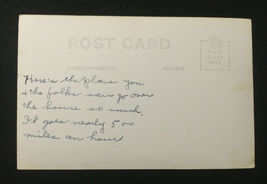 POST CARD
CORRESPONDENCE ADDRESS
PLACE
STAMP
HERE
Here's the plane you
& the folks saw go over
the house so much.
It goes nearly 500
miles an hour